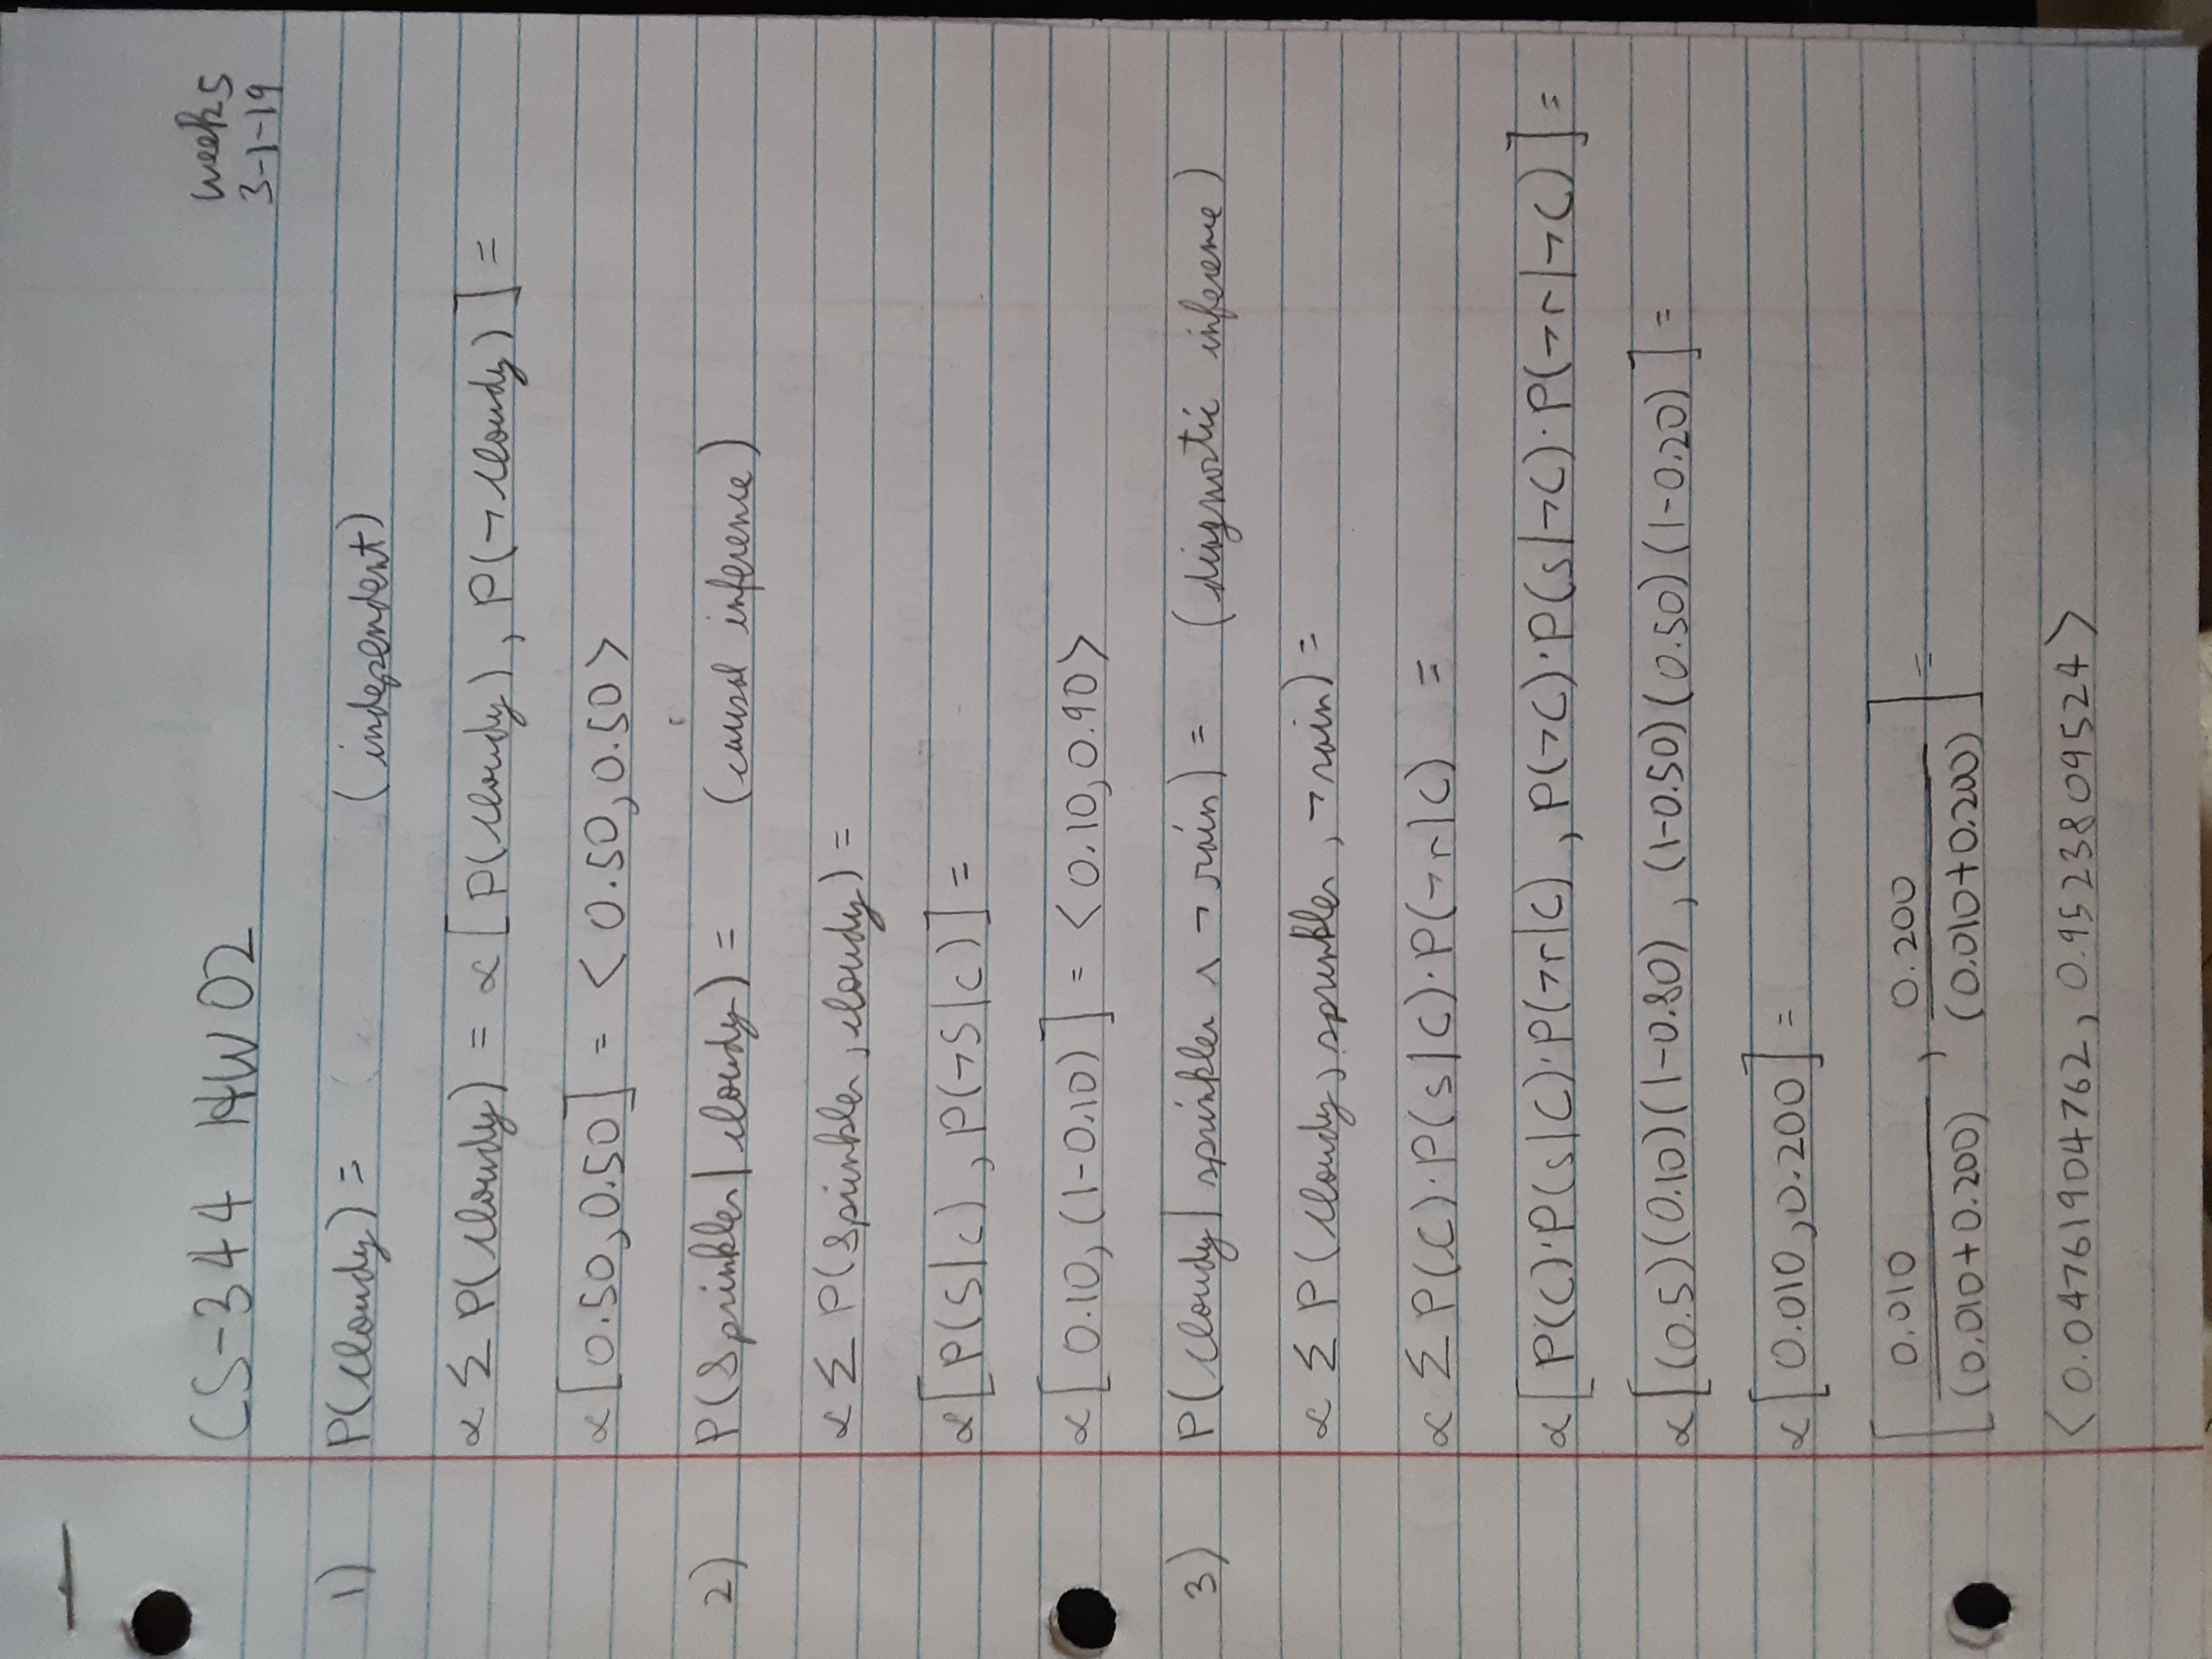 CS-344 HW02
week 5
3-1-19
1) P(Cloudy) = (independent)
∝ Σ P(Cloudy) = ∝ [P(Cloudy), P(¬Cloudy)] =
∝ [0.50, 0.50] = <0.50, 0.50>
2) P(Sprinkler | cloudy) = (causal inference)
∝ Σ P(Sprinkler, cloudy) =
∝ [P(S|c), P(¬S|c)] =
∝ [0.10, (1-0.10)] = <0.10, 0.90>
3) P(Cloudy | sprinkler ∧ ¬rain) = (diagnostic inference)
∝ Σ P(Cloudy, sprinkler, ¬rain) =
∝ Σ P(C)·P(s|C)·P(¬r|C) =
∝ [P(C)·P(s|C)·P(¬r|C), P(¬C)·P(s|¬C)·P(¬r|¬C)] =
∝ [(0.5)(0.10)(1-0.80), (1-0.50)(0.50)(1-0.20)] =
∝ [0.010, 0.200] =
[0.010/(0.010+0.200), 0.200/(0.010+0.200)] =
<0.04761904762, 0.9523809524>